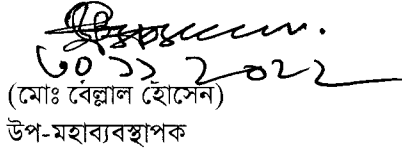 ৩০ ১১ 2022
(মোঃ বেল্লাল হোসেন)
উপ-মহাব্যবস্থাপক